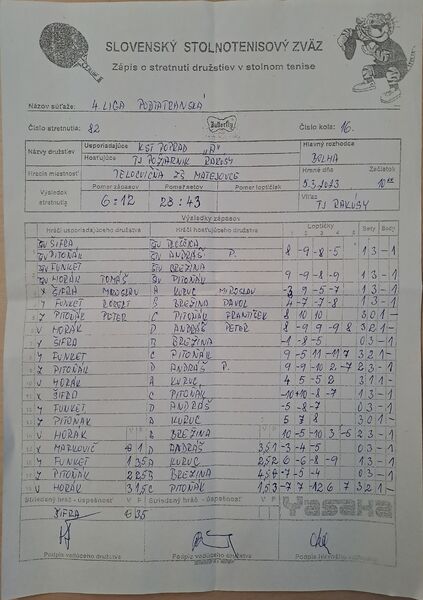 SLOVENSKÝ STOLNOTENISOVÝ ZVÄZ
Zápis o stretnutí družstiev v stolnom tenise
Názov súťaže: 4. LIGA PODTATRANSKÁ
Číslo stretnutia: 82 Butterfly Číslo kola: 16.
Názvy družstiev Usporiadajúce KST POPRAD "A" Hlavný rozhodca
Hosťujúce TJ POŽIARNIK RAKÚSY
Hracia miestnosť TELOCVIČŇA ZŠ MATEJOVCE Hrací dňa Začiatok
Výsledok stretnutia Pomer zápasov Pomer setov Pomer loptičiek 5.3.2023 10
6:12 28:43 Víťaz TJ RAKÚSY
Výsledky zápasov
Hráči usporiadajúceho družstva Hráči hosťujúceho družstva Loptičky Sety Body
1 2 3 4 5
ŠIFRA
PITOŇÁK ANDRÁŠ P. 8 -9 -8 -5 1 3 - 1
FUNKET BREZINA
HORÁK TOMÁŠ PITOŇÁK -9 -9 8 -9 1 3 - 1
X ŠIFRA MIROSLAV A KURUC MIROSLAV -3 9 -5 -7 1 3 - 1
Y FUNKET RÓBERT B BREZINA PAVOL 4 -7 -7 -8 1 3 - 1
Z PITOŇÁK PETER C PITOŇÁK FRANTIŠEK 8 10 10 3 0 1 -
V HORÁK D ANDRÁŠ PETER 8 -9 9 -9 8 3 2 1 -
X ŠIFRA B BREZINA -1 -8 -5 0 3 - 1
Y FUNKET C PITOŇÁK 9 -5 11 -11 7 3 2 1 -
Z PITOŇÁK D ANDRÁŠ P. 9 -9 10 2 -7 2 3 - 1
V HORÁK A KURUC 4 5 -5 2 3 1 1 -
X ŠIFRA C PITOŇÁK -10 +10 -8 -7 1 3 - 1
Y FUNKET D ANDRÁŠ -5 -8 -7 0 3 - 1
Z PITOŇÁK A KURUC 5 7 8 3 0 1 -
V HORÁK B BREZINA 10 -5 -10 3 -5 2 3 - 1
X MARKOVIČ D ANDRÁŠ -3 -4 -5 0 3 - 1
Y FUNKET A KURUC 6 -6 -8 -9 1 3 - 1
Z PITOŇÁK B BREZINA -7 -5 -4 0 3 - 1
V HORÁK C PITOŇÁK -7 -7 12 6 7 3 2 1 -
Striedaný hráč - úspešnosť V P Striedaný hráč - úspešnosť V P Yasaka
ŠIFRA
Podpis vedúceho družstva Podpis vedúceho družstva Podpis hlavného rozhodcu